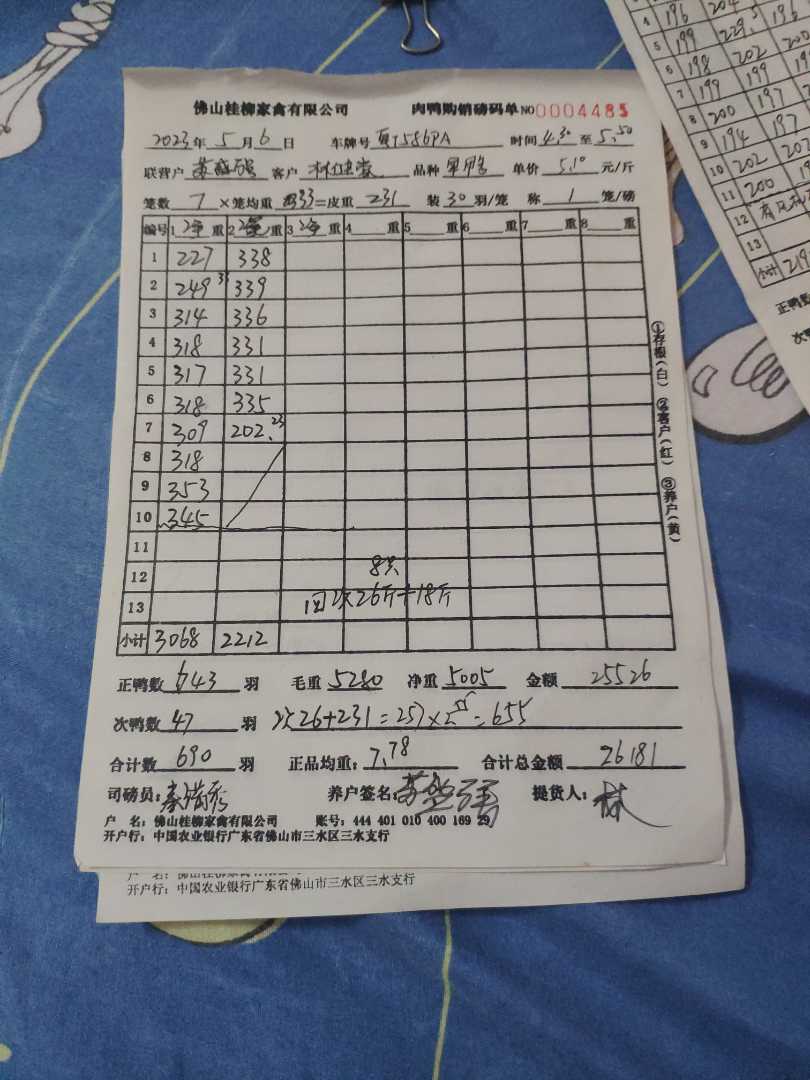 佛山桂柳家禽有限公司 肉鸭购销磅码单 NO 0004485
2023年 5月 6日 车牌号 时间 4.30 至 5.50
联营户 客户 品种 单价 5.10 元/斤
笼数 7 ×笼均重 33=皮重 231 装 30 羽/笼 称 1 笼/磅
编号 1 净 重 2 重 3 净 重 4 重 5 重 6 重 7 重 8 重
1 227 338
2 249 339
3 314 336
4 318 331
5 317 331
6 318 335
7 309 202.
8 318
9 353
10 345
11
12 8只
13 回次26斤+18斤
小计 3068 2212
①存根(白) ②客户(红) ③养户(黄)
正鸭数 643 羽 毛重 5280 净重 5005 金额 25526
次鸭数 47 羽 次26+231=257×2.55=655
合计数 690 羽 正品均重: 7.78 合计总金额 26181
司磅员: 秦 秀 养户签名: 苏 强 提货人: 林
户 名: 佛山桂柳家禽有限公司 账号: 444 401 010 400 169 29
开户行: 中国农业银行广东省佛山市三水区三水支行
开户行: 中国农业银行广东省佛山市三水区三水支行
4 196 204 196
5 199 229.5
6 198 202 200
7 199 199
8 200 197
9 194 197
10 202 207
11 200
12
13
小计 219